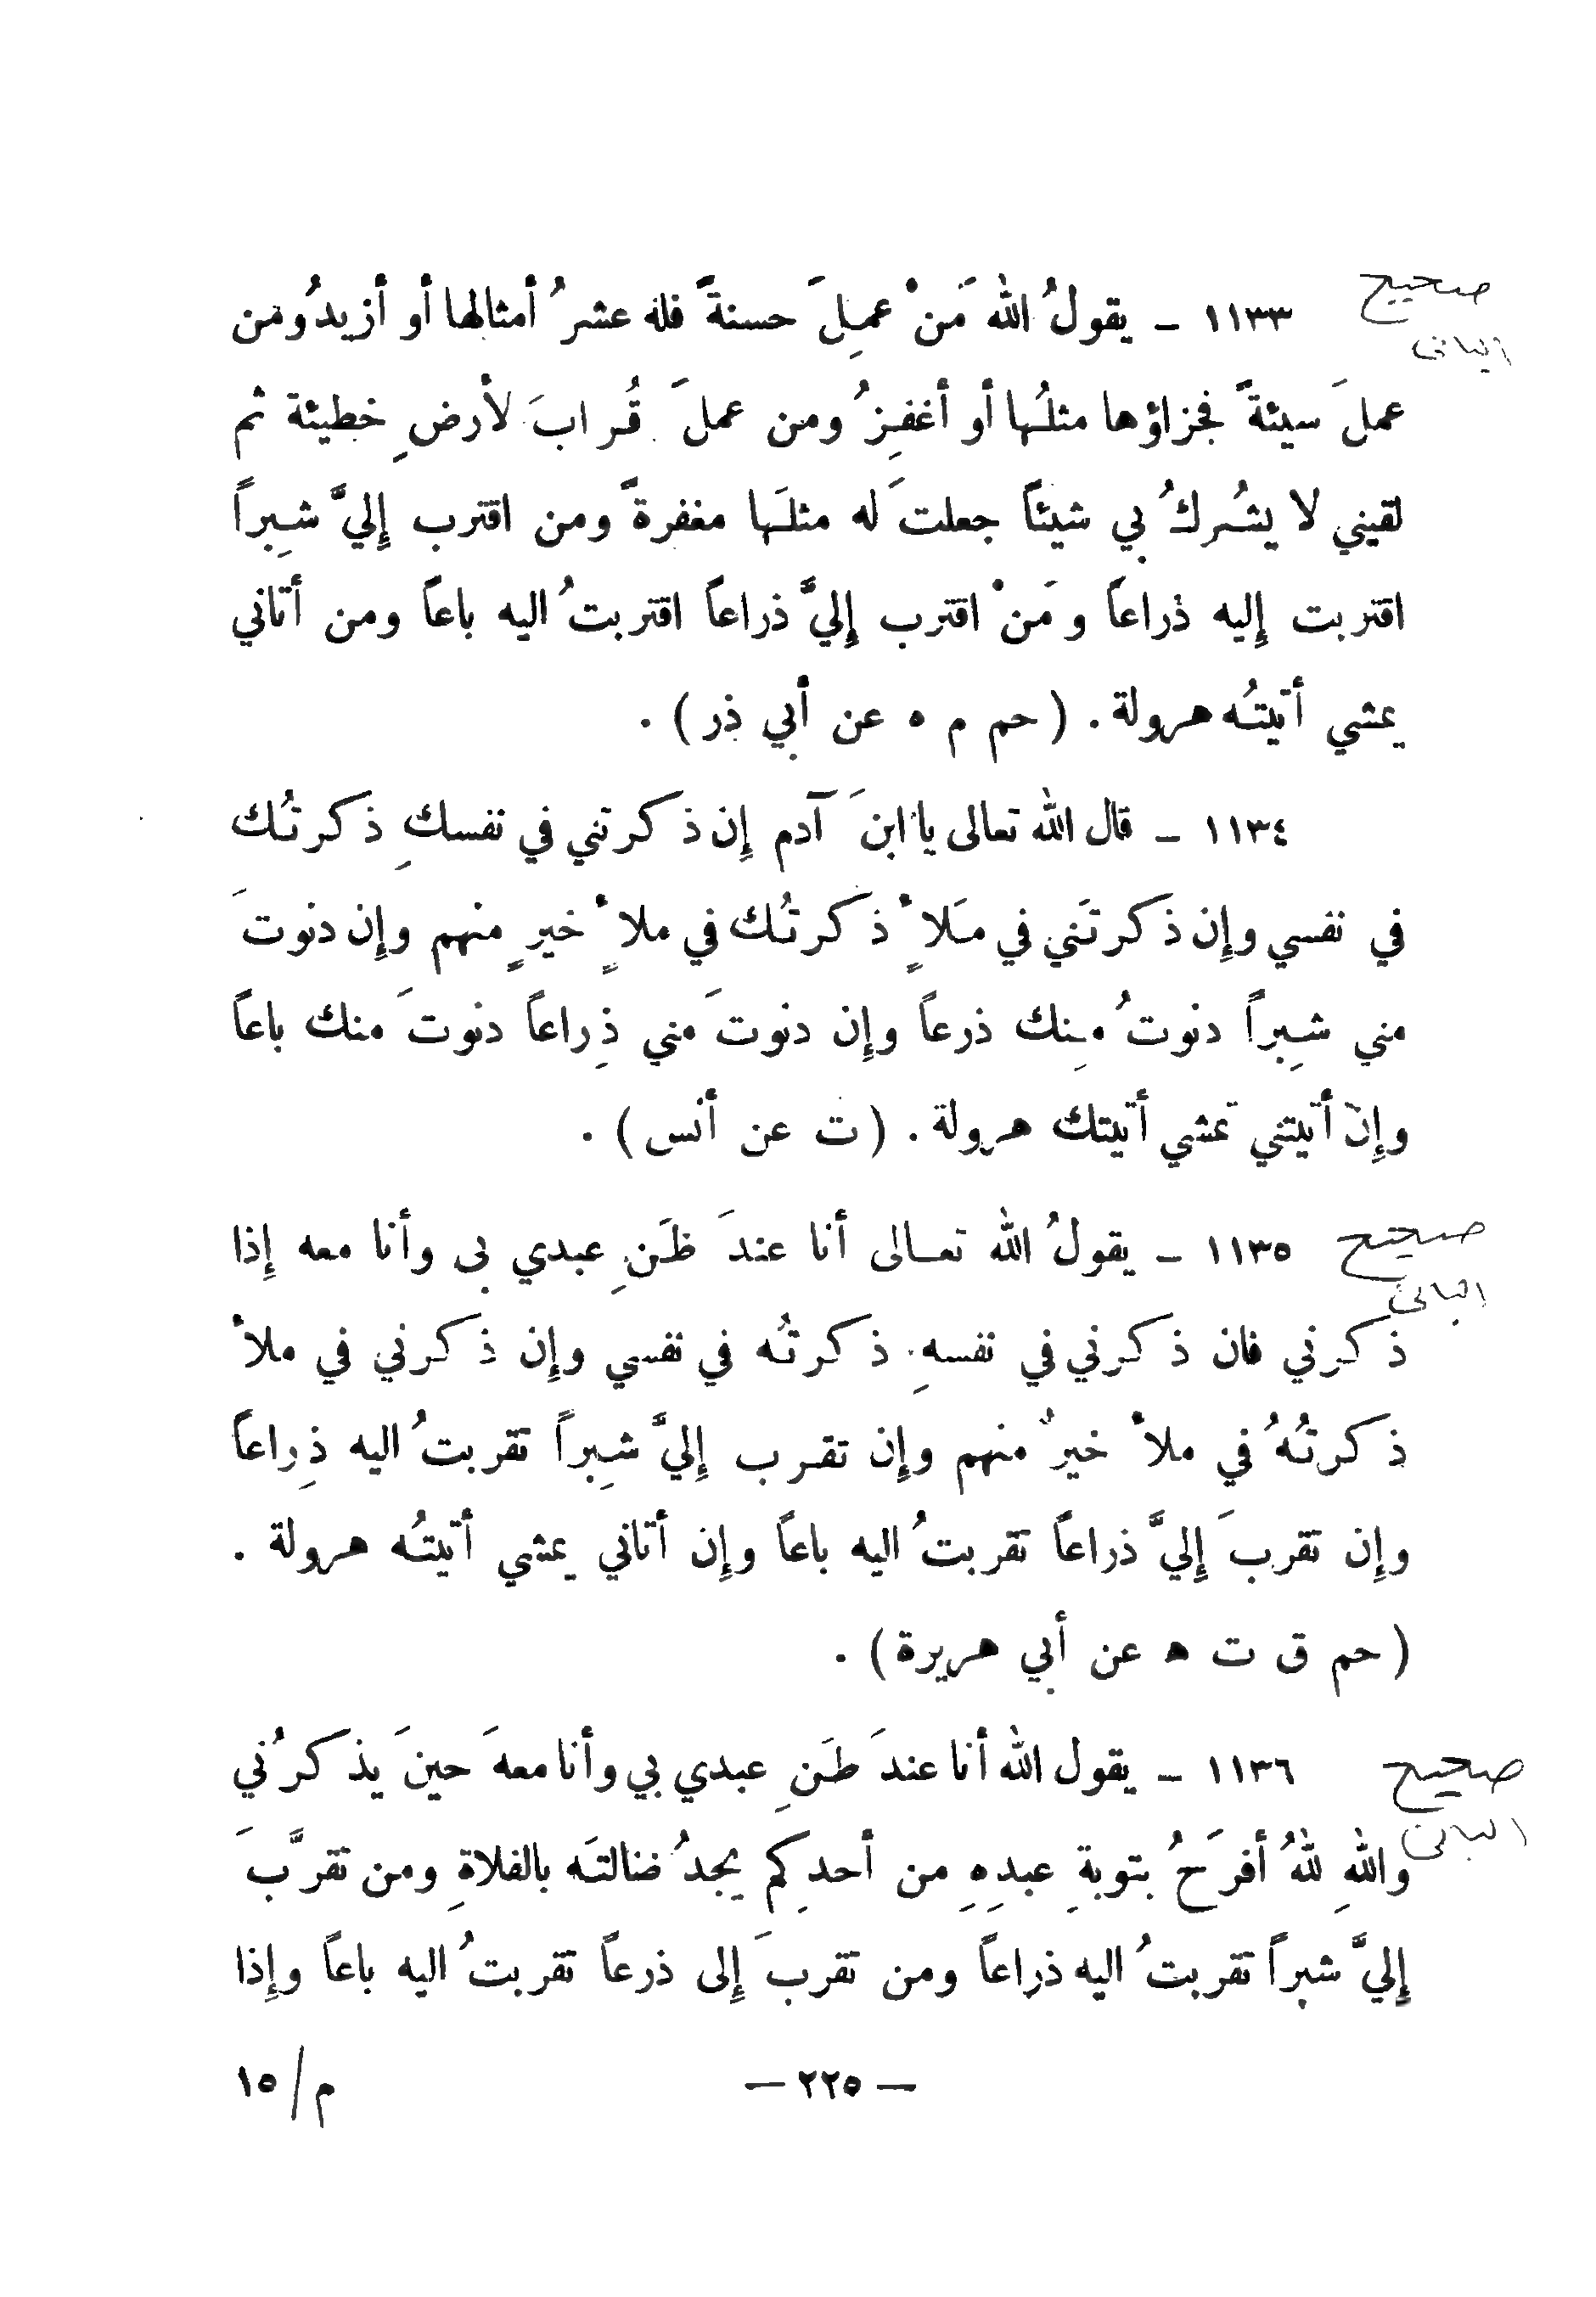 صحيح
١١٣٣ - يقولُ الله مَنْ عمِلَ حسنةً فله عشرُ أمثالها أو أزيدُ ومن
الباني
عملَ سيئةً فجزاؤها مثلُها أو أغفِرُ ومن عملَ قُرابَ لأرضِ خطيئة ثم
لقيني لا يشُركُ بي شيئاً جعلتَ له مثلَها مغفرةً ومن اقترب إليَّ شِبراً
اقتربت إليه ذراعاً ومَنْ اقترب إليَّ ذراعاً اقتربتُ اليه باعاً ومن أتاني
يمشي أتيتُه هرولة . ( حم م ه عن أبي ذر ) .
١١٣٤ - قال الله تعالى يا ابنَ آدم إن ذكرتني في نفسكِ ذكرتُك
في نفسي وإن ذكرتَني في مَلاٍْ ذكرتُك في ملاٍْ خيرٍ منهم وإن دنوتَ
مني شِبراً دنوتُ مِنك ذرعاً وإن دنوتَ مني ذِراعاً دنوتَ منك باعاً
وإن أتيتني تمشي أتيتك هرولة . ( ت عن أنس ) .
صحيح
١١٣٥ - يقولُ الله تعالى أنا عندَ ظَنِ عبدي بى وأنا معه إذا
الباني
ذكرني فان ذكرني في نفسهِ ذكرتُه في نفسي وإن ذكرني في ملأ
ذكرتُهُ في ملأ خيرٌ منهم وإن تقرب إليَّ شِبراً تقربتُ اليه ذِراعاً
وإن تقربَ إليَّ ذراعاً تقربتُ اليه باعاً وإن أتاني يمشي أتيتُه هرولة .
( حم ق ت ه عن أبي هريرة ) .
صحيح
١١٣٦ - يقول الله أنا عندَ طَنِ عبدي بي وأنا معهَ حينَ يذكرُني
الباني
واللهِ للهُ أفرَحُ بتوبةِ عبدِهِ من أحدِكم يجدُ ضالتَه بالفلاةِ ومن تقرَّبَ
إليَّ شبراً تقربتُ اليه ذراعاً ومن تقربَ إلى ذرعاً تقربتُ اليه باعاً وإذا
- ٢٢٥ -
م/١٥